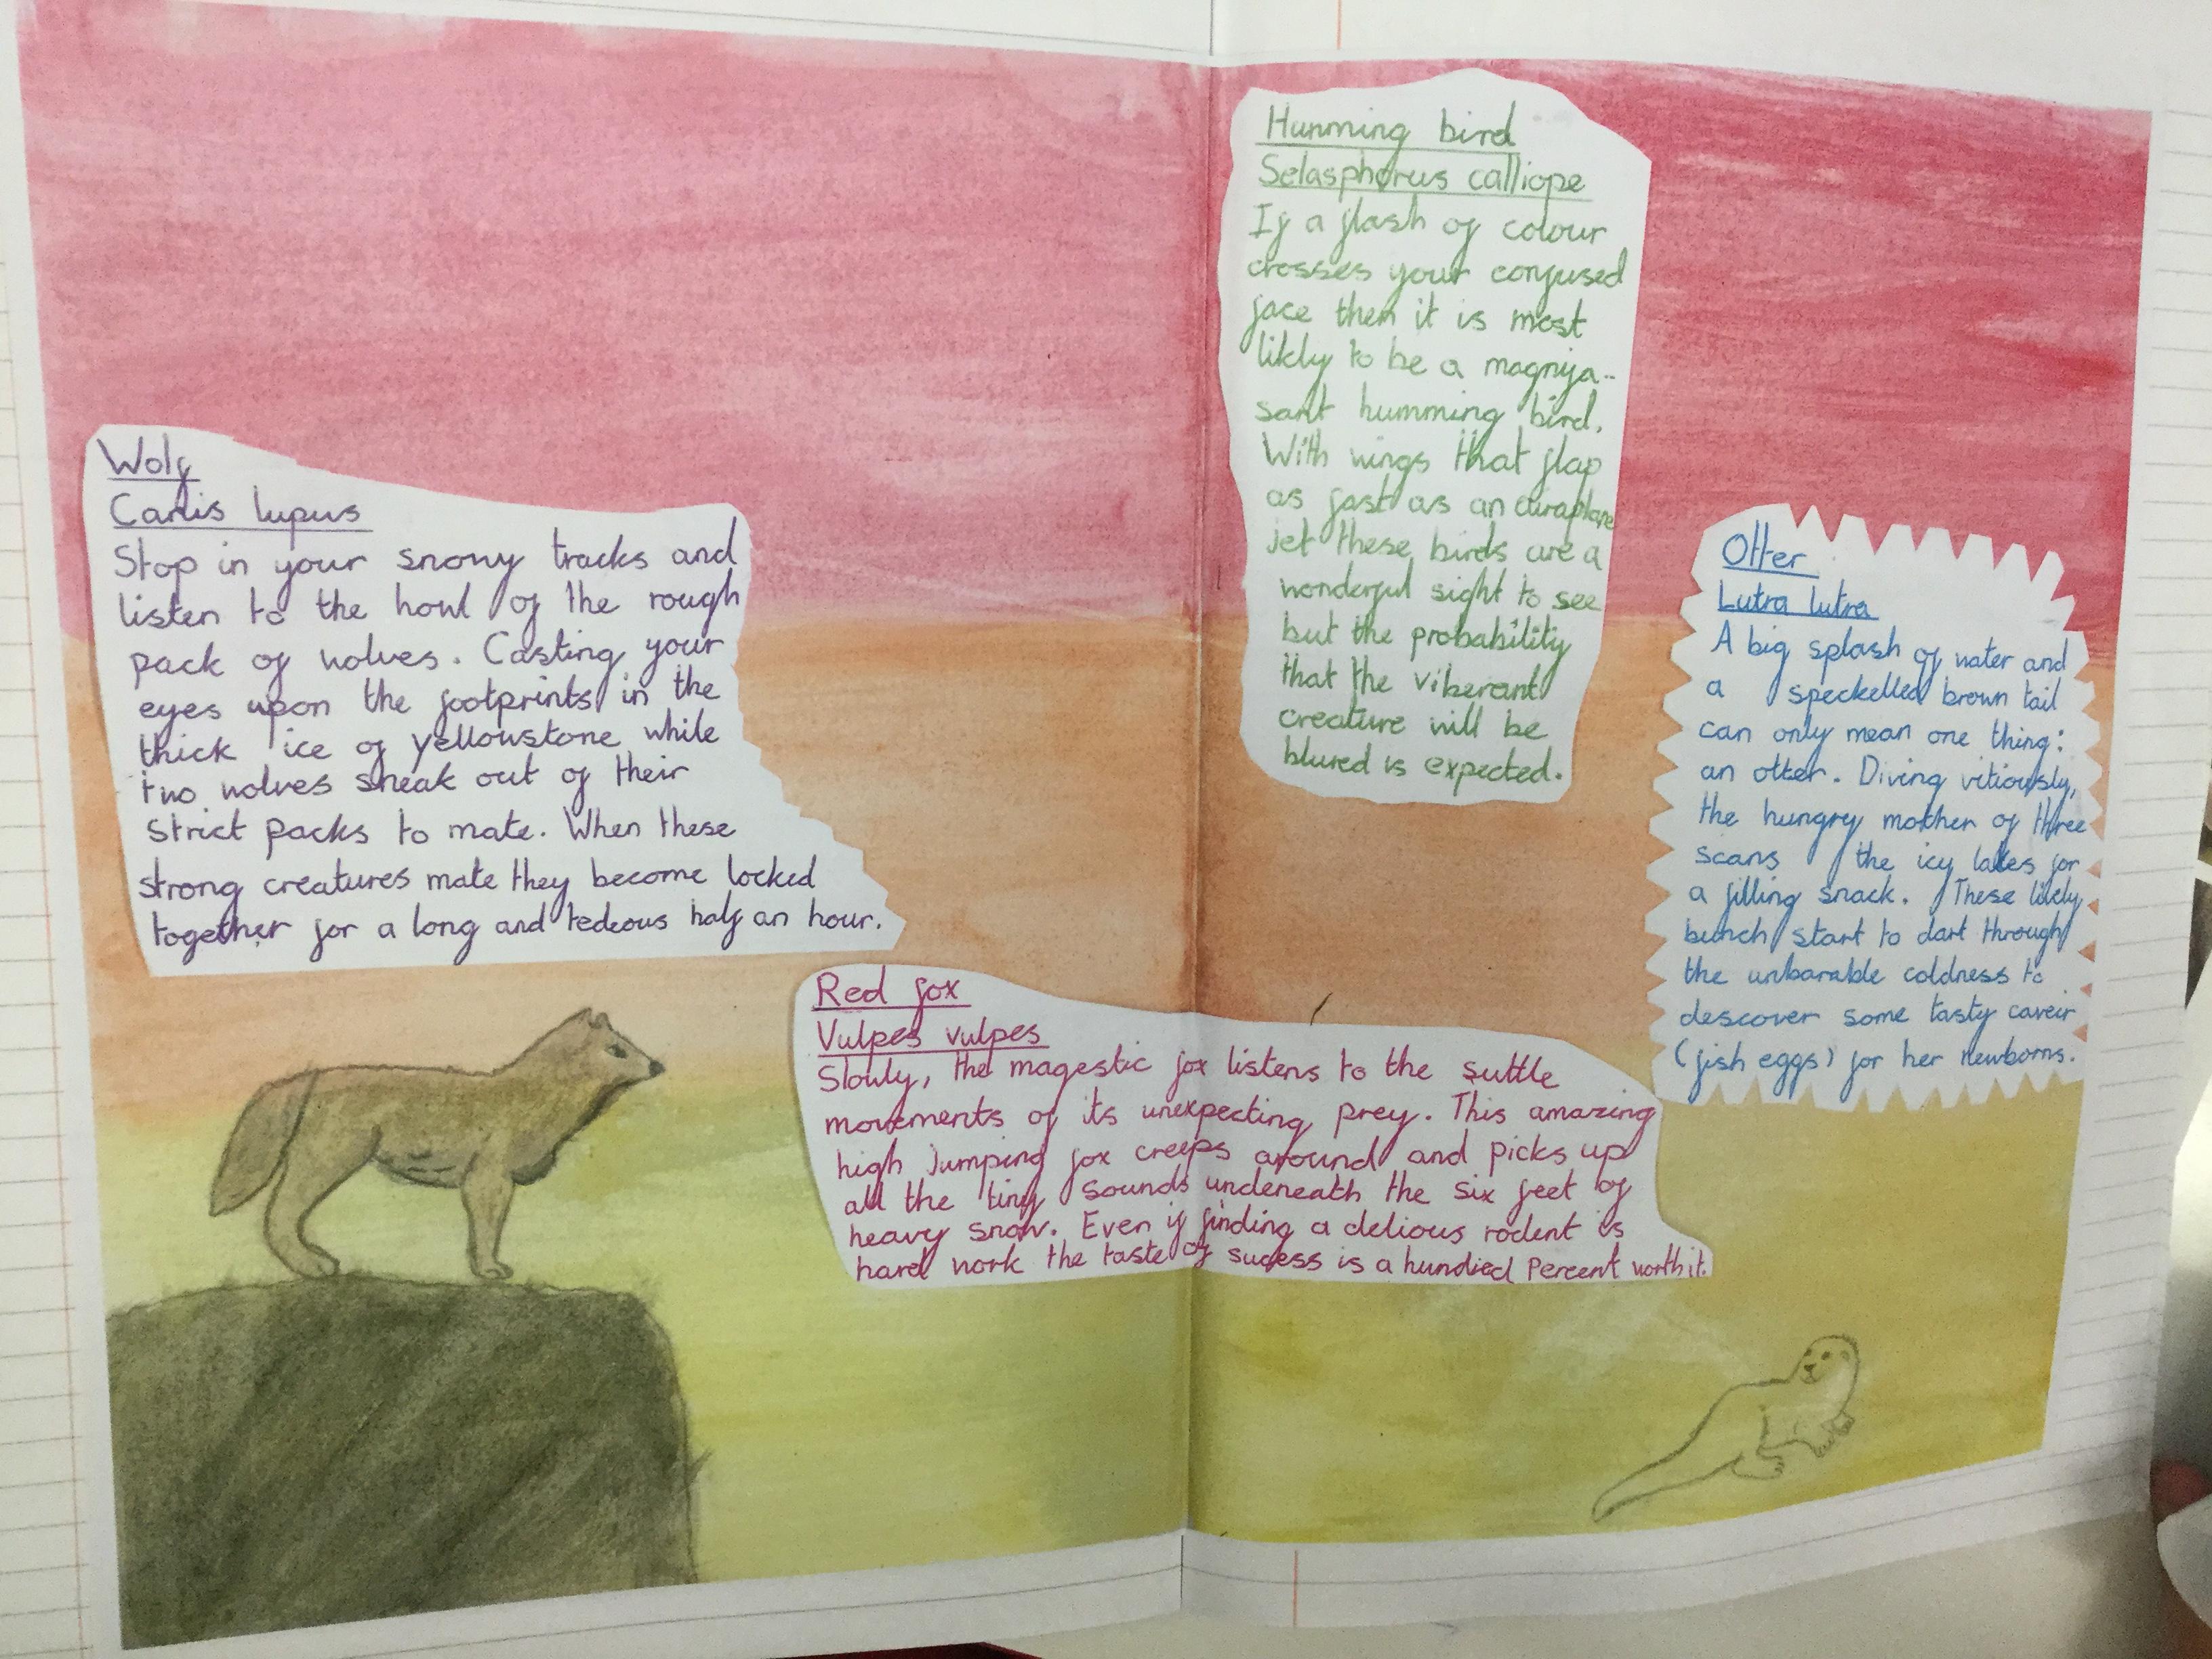 Wolf
Canis lupus
Stop in your snowy tracks and
listen to the howl of the rough
pack of wolves. Casting your
eyes upon the footprints in the
thick ice of yellowstone while
two wolves sneak out of their
strict packs to mate. When these
strong creatures mate they become locked
together for a long and tedeous half an hour.
Red fox
Vulpes vulpes
Slowly, the magestic fox listens to the suttle
movements of its unexpecting prey. This amazing
high jumping fox creeps around and picks up
all the tiny sounds underneath the six feet of
heavy snow. Even if finding a delious rodent is
hard work the taste of sucess is a hundied percent worth it.
Humming bird
Selasphorus calliope
If a flash of colour
crosses your confused
face then it is most
likly to be a magnifa-
sant humming bird.
With wings that flap
as fast as an airaplane
jet these birds are a
wonderful sight to see
but the probability
that the viberant
creature will be
blured is expected.
Otter
Lutra lutra
A big splash of water and
a speckelled brown tail
can only mean one thing:
an otter. Diving vitiously,
the hungry mother of three
scans the icy lakes for
a filling snack. These likely
bunch start to dart through
the unbarable coldness to
descover some tasty caveir
(fish eggs) for her newborns.